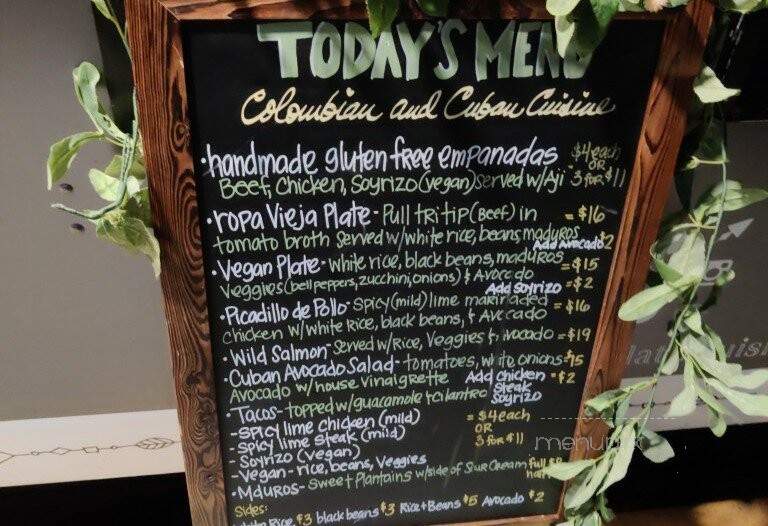 TODAY'S MENU
Colombian and Cuban Cuisine
·handmade gluten free empanadas $4 each
OR
Beef, Chicken, Soyrizo (vegan) served w/Aji 3 for $11
·ropa Vieja Plate - Pull tri tip (Beef) in = $16
tomato broth served w/white rice, beans, maduros
Add Avocado $2
·Vegan Plate - white rice, black beans, maduros = $15
Veggies (bell peppers, zucchini, onions) & Avocado
Add Soyrizo = $2
·Picadillo de Pollo - spicy (mild) lime marinaded = $16
chicken w/white Rice, black beans, & Avocado
·Wild Salmon - served w/Rice, Veggies & Avocado = $19
·Cuban Avocado Salad - tomatoes, white onions = $15
Avocado w/house vinaigrette Add chicken = $2
steak
Soyrizo
·Tacos - topped w/guacamole + cilantro
- spicy lime chicken (mild) = $4 each
- spicy lime steak (mild) OR
- Soyrizo (vegan) 3 for $11
- Vegan - rice, beans, Veggies
·Mduros - sweet Plantains w/side of Sour Cream full $8
half
Sides:
Rice $3 black beans $3 Rice + Beans $5 Avocado $2